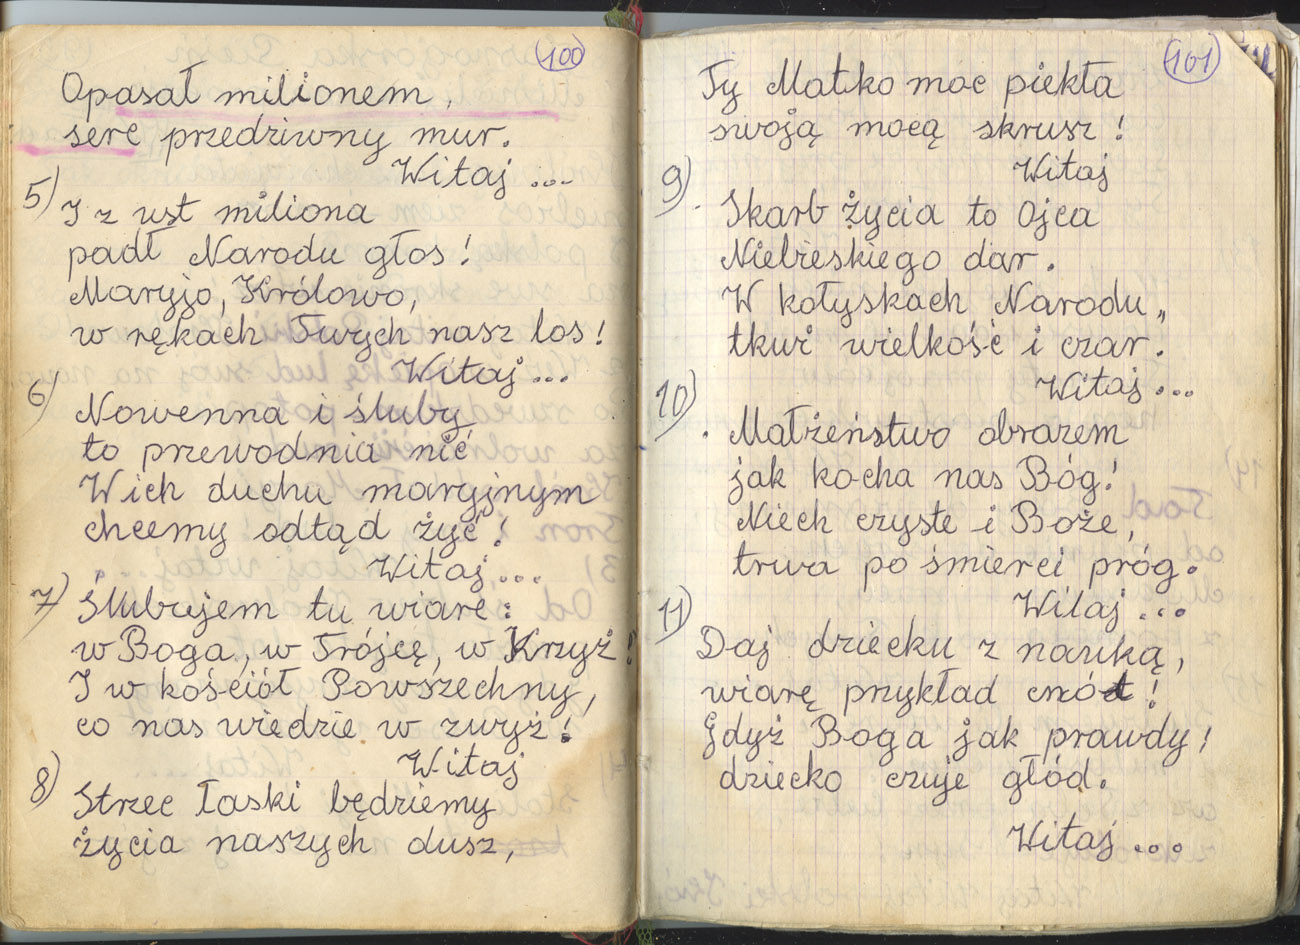 100
Opasał milionem,
serc przedziwny mur.
Witaj ...
5) I z ust miliona
padł Narodu głos!
Maryjo, Królowo,
w rękach Twych nasz los!
Witaj ...
6) Nowenna i śluby
to przewodnia nić
W ich duchu maryjnym
chcemy odtąd żyć!
Witaj ...
7) Ślubujem tu wiarę:
w Boga, w Trójcę, w Krzyż!
I w kościół Powszechny,
co nas wiedzie w zwyż!
Witaj
8) Strzec Łaski będziemy
życia naszych dusz,
101
Ty Matko moc piekła
swoją mocą skrusz!
Witaj
9). Skarb życia to Ojca
Niebieskiego dar.
W kołyskach Narodu„
tkwi wielkość i czar.
Witaj ...
10). Małżeństwo obrazem
jak kocha nas Bóg!
Niech czyste i Boże,
trwa po śmierci próg.
Witaj ...
11) Daj dziecku z nauką,
wiarę przykład cnót!
Gdyż Boga jak prawdy!
dziecko czuje głód.
Witaj ...